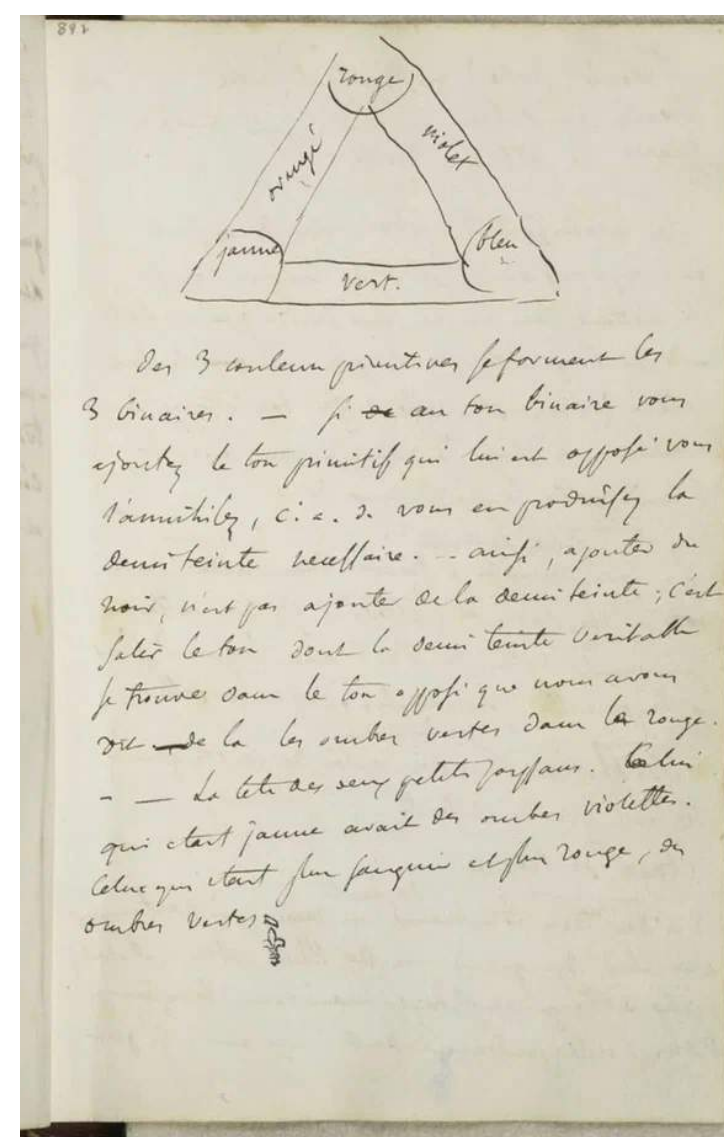 892
rouge
orangé
violet
jaune
bleu
vert.
Des 3 couleurs primitives se forment les
3 binaires. — si de au ton binaire vous
ajoutez le ton primitif qui lui est opposé vous
l'annihilez, c. a. d. vous en produisez la
demi teinte necessaire. - ainsi, ajouter du
noir, n'est pas ajouter de la demi teinte ; c'est
salir le ton dont la demi teinte veritable
se trouve dans le ton opposé que nous avons
dit — de la les ombres vertes dans le rouge.
- — La tete des deux petits paysans. Celui
qui etait jaune avait des ombres violettes.
Celui qui etait plus sanguin et plus rouge, des
ombres vertes